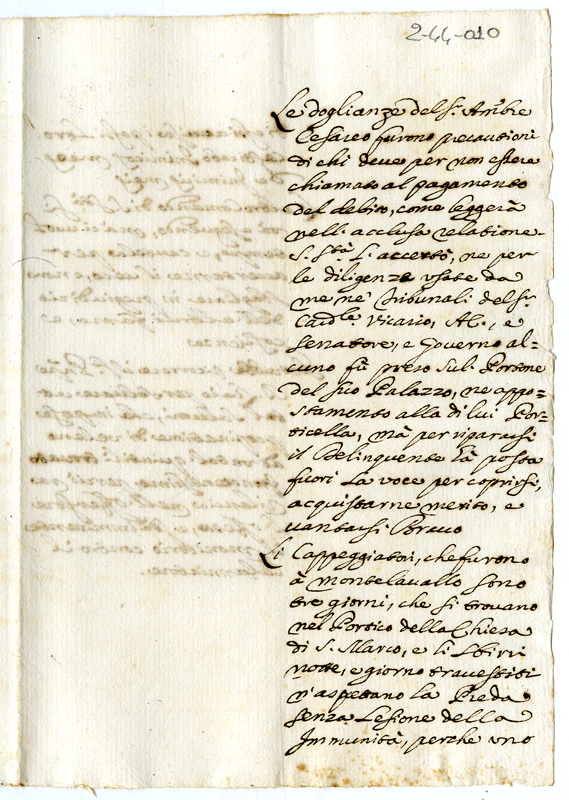 2-44-010
Le doglianze del S.r Amb.re
Cesareo furono precautioni
di chi deve per non essere
chiamato al pagamento
del debito, come leggerà
nell'acclusa relatione.
S. S.tà l'accertò, ne per
le diligenze usate da
me ne Tribunali del S.r
Card.le Vicario, AC., e
Senatore, e Governo al=
cuno fù preso sul Portone
del suo Palazzo, ne appo=
stamento alla di lui Por=
ticella, mà per
il Delinquente hà posta
fuori la voce per coprirsi,
acquistarne merito, e
vantarsi Bravo
Li Cappeggiatori, che furono
à Montecavallo sono
tre giorni, che si trovano
nel Portico della Chiesa
di S. Marco, e li Sbirri
notte, e giorno travestiti
n'aspettano la Preda
senza Lesione della
Immunità, perche uno